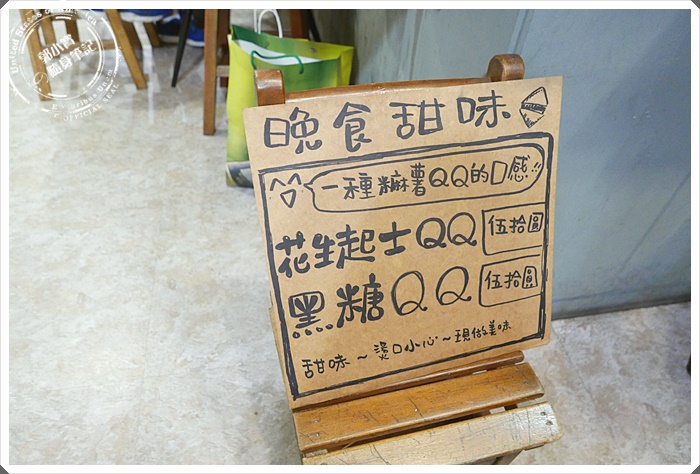 晚食甜味
一種麻薯QQ的口感!!
花生起士QQ 伍拾圓
黑糖QQ 伍拾圓
甜味～燙口小心～現做美味